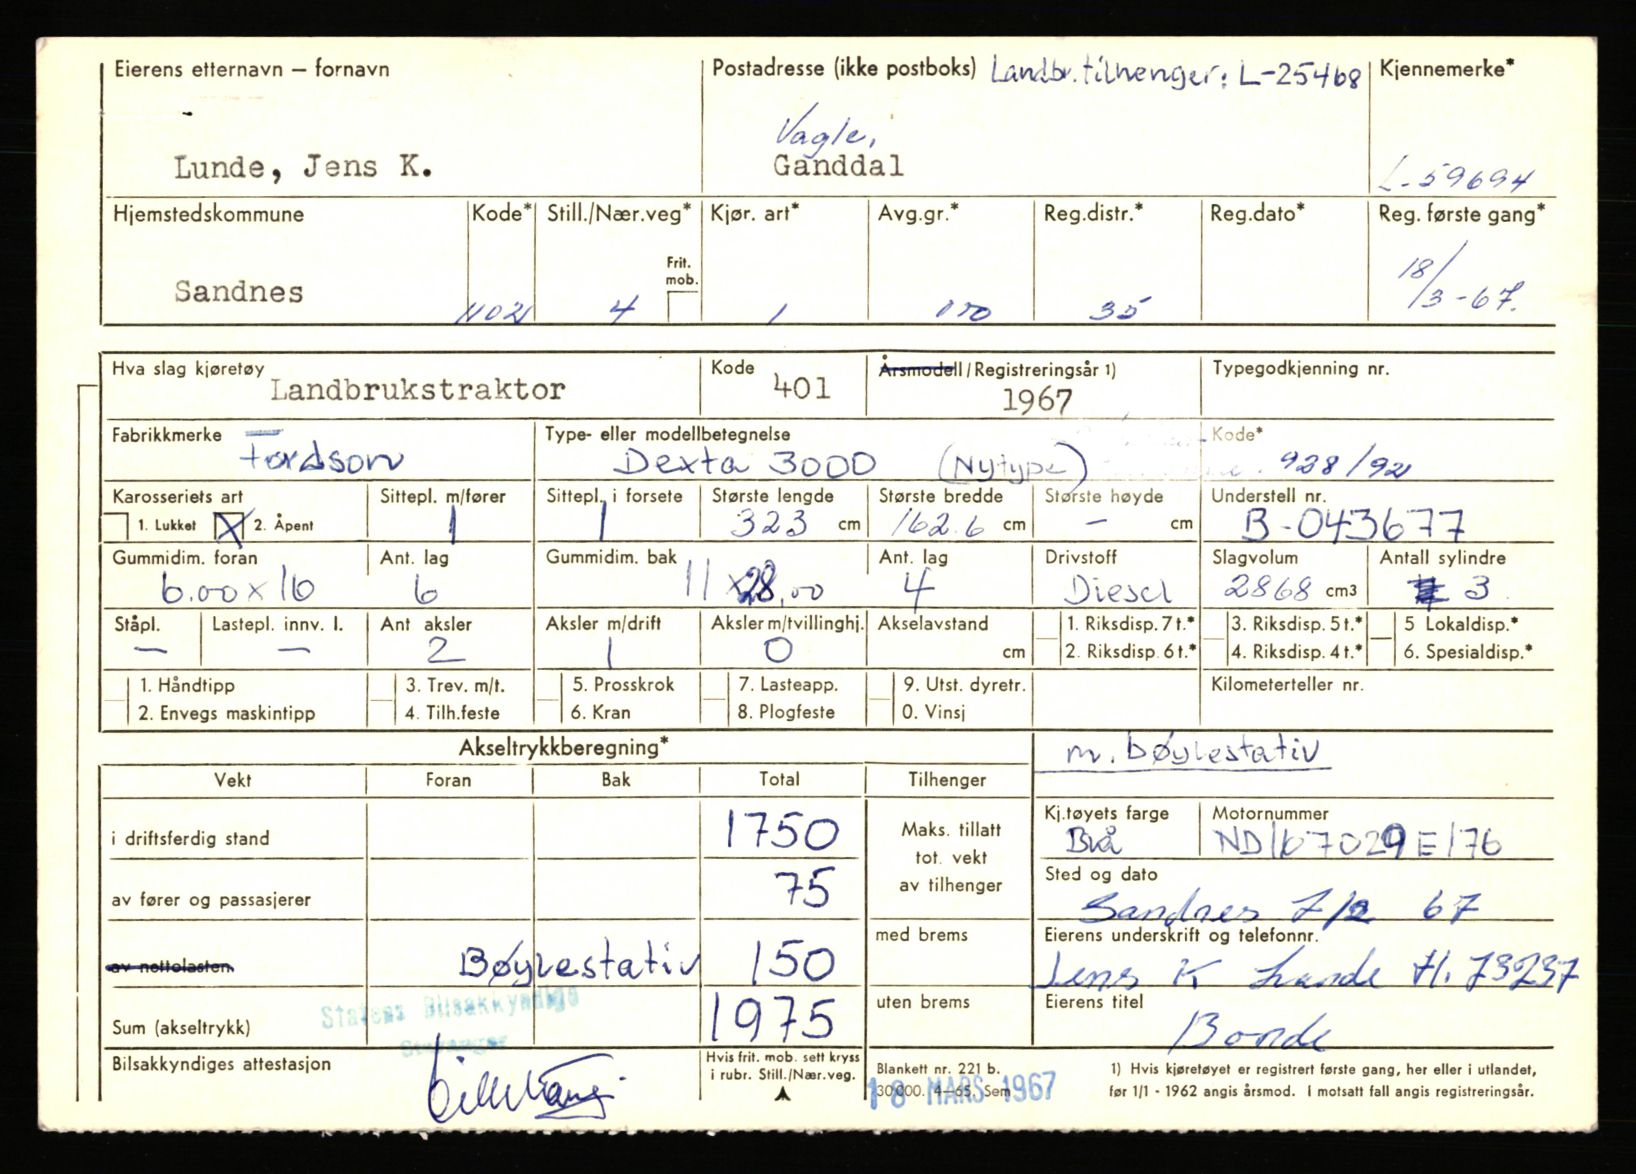 Eierens etternavn – fornavn
Postadresse (ikke postboks) Landbr.tilhenger: L-25468
Kjennemerke*
Vagle,
Lunde, Jens K.
Ganddal
L-59694
Hjemstedskommune Kode* Still./Nær.veg* Kjør. art* Avg.gr.* Reg.distr.* Reg.dato* Reg. første gang*
Frit. mob.
Sandnes 1102 4 1 170 35 18/3-67.
Hva slag kjøretøy Kode Årsmodell/Registreringsår 1) Typegodkjenning nr.
Landbrukstraktor 401 1967
Fabrikkmerke Type- eller modellbetegnelse Kode*
Fordson Dexta 3000 (Nytype) 928/92
Karosseriets art Sittepl. m/fører Sittepl. i forsete Største lengde Største bredde Største høyde Understell nr.
1. Lukket X 2. Åpent 1 1 323 cm 162.6 cm – cm B-043677
Gummidim. foran Ant. lag Gummidim. bak Ant. lag Drivstoff Slagvolum Antall sylindre
6.00 x 16 6 11 x 28.00 4 Diesel 2868 cm3 3
Ståpl. Lastepl. innv. l. Ant aksler Aksler m/drift Aksler m/tvillinghj. Akselavstand 1. Riksdisp. 7 t.* 3. Riksdisp. 5 t.* 5 Lokaldisp.*
– – 2 1 0 cm 2. Riksdisp. 6 t.* 4. Riksdisp. 4 t.* 6. Spesialdisp.*
1. Håndtipp 3. Trev. m/t. 5. Prosskrok 7. Lasteapp. 9. Utst. dyretr. Kilometerteller nr.
2. Envegs maskintipp 4. Tilh.feste 6. Kran 8. Plogfeste 0. Vinsj
Akseltrykkberegning*
m. bøylestativ
Vekt Foran Bak Total Tilhenger
Kj.tøyets farge Motornummer
i driftsferdig stand 1750 Maks. tillatt
tot. vekt
av tilhenger
Blå ND167029E176
Sted og dato
av fører og passasjerer 75
Sandnes 7/2 67
med brems
Eierens underskrift og telefonnr.
av nettolasten Bøylestativ 150
Jens K Lunde tl. 73237
uten brems
Eierens titel
Statens Bilsakkyndige
Stavanger
Sum (akseltrykk) 1975
Bonde
Bilsakkyndiges attestasjon
Hvis frit. mob. sett kryss
i rubr. Still./Nær.veg.
Blankett nr. 221 b.
30 000. 4–65. Sem
18 MARS 1967
1) Hvis kjøretøyet er registrert første gang, her eller i utlandet,
før 1/1 - 1962 angis årsmod. I motsatt fall angis registreringsår.